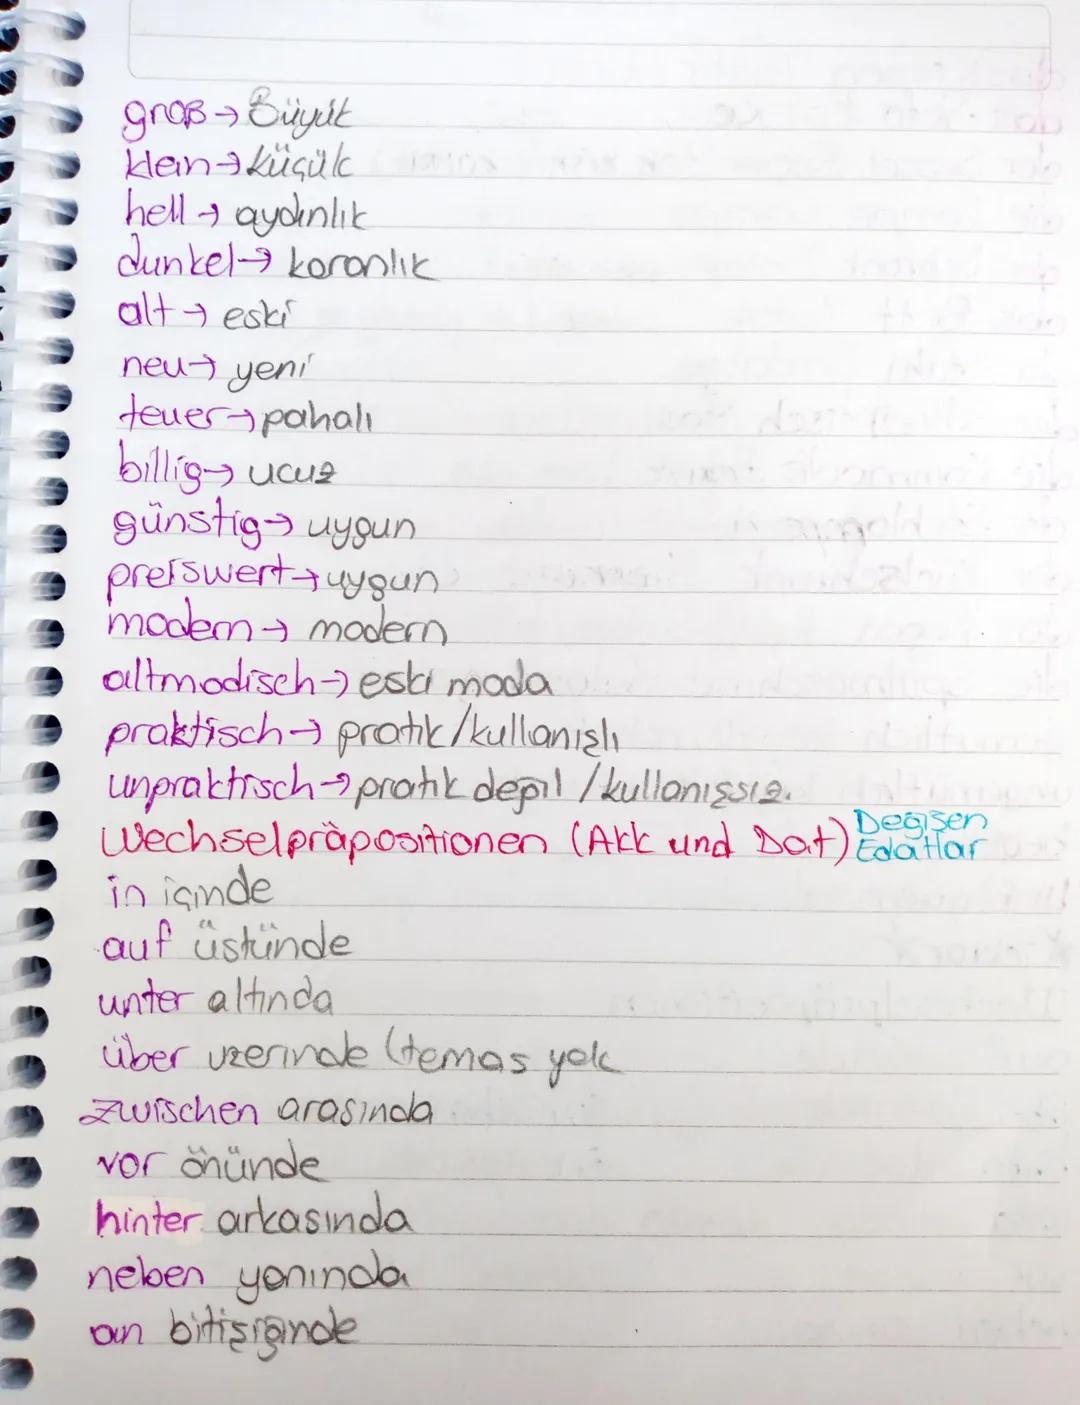 groß → Büyük
klein → küçük
hell → aydınlık
dunkel → karanlık
alt → eski
neu → yeni
teuer → pahalı
billig → ucuz
günstig → uygun
preiswert → uygun
modern → modern
altmodisch → eski moda
praktisch → pratik/kullanışlı
unpraktisch → pratik değil /kullanışsız.
Wechselpräpositionen (Akk und Dat) Değişen Edatlar
in içinde
auf üstünde
unter altında
über üzerinde (temas yok
zwischen arasında
vor önünde
hinter arkasında
neben yanında
an bitişiğinde